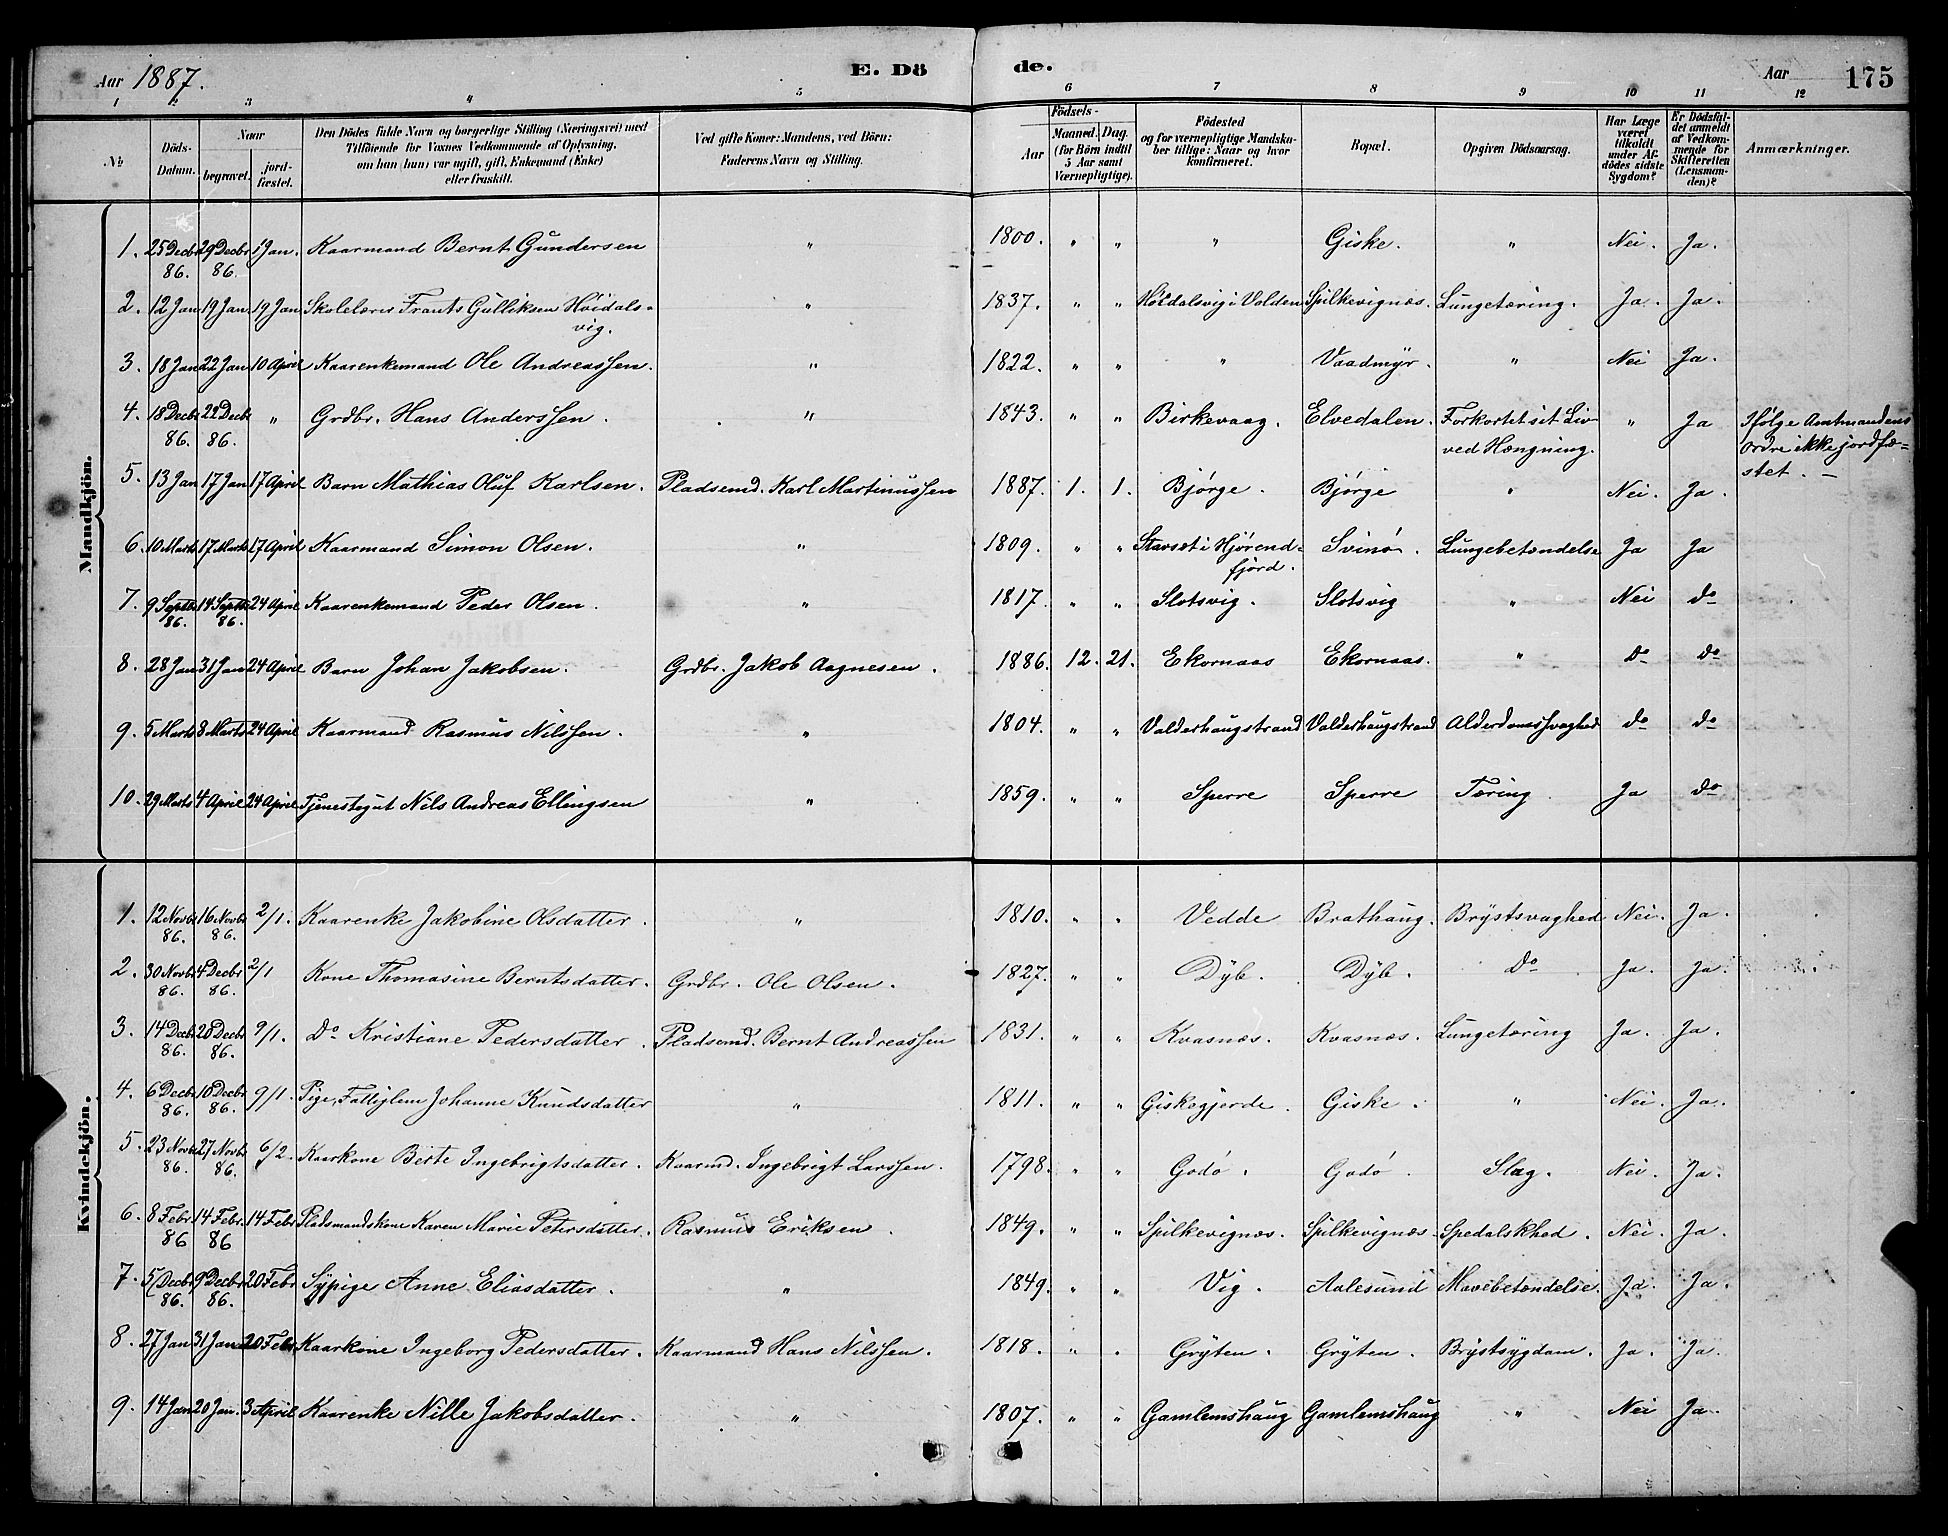 Aar 1887. E. Dö de. Aar 175
1 2 3 4 5 6 7 8 9 10 11 12
No
Döds-Datum.
Naar
begravet.
jordfæstet.
Den Dödes fulde Navn og borgerlige Stilling (Næringsvei) med
Tilföiende for Voxnes Vedkommende af Oplysning,
om han (hun) var ugift, gift, Enkemand (Enke)
eller fraskilt.
Ved gifte Koner: Mandens, ved Börn:
Faderens Navn og Stilling.
Födsels-
Aar
Maaned. Dag.
(for Börn indtil
5 Aar samt
Værnepligtige).
Födested
og for værnepligtige Mandska-
ber tillige: Naar og hvor
konfirmeret.
Bopæl.
Opgiven Dödsaarsag.
Har Læge
været
tilkaldt
under Af-
dödes sidste
Sygdom?
Er Dödsfal-
det anmeldt
af Vedkom-
mende for
Skifteretten
(Lensman-
den)?
Anmærkninger.
Mandkjön.
1. 25 Decbr 86. 29 Decbr 86. 1 Jan. Kaarmand Bernt Gundersen " 1800. " " " Giske. " Nei. Ja.
2. 12 Jan 19 Jan 19 Jan Skolelærer Frants Gulliksen Höidals-
vig. " 1837. " " Höidalsvig i Volden Spilkevignæs. Lungetæring. Ja. Ja.
3. 18 Jan 22 Jan 10 April Kaarenkemand Ole Andreassen. " 1822. " " " Vaadmyr. " Nei Ja.
4. 18 Decbr 86. 22 Decbr 86. " Grdbr. Hans Anderssen. " 1843. " " Birkevaag. Elvedalen. Forkortet sit Liv
ved Hængning. " Ja Ifølge Amtmandens
Ordre ikke jordfæ-
stet. —
5. 13 Jan 17 Jan 17 April Barn Mathias Oluf Karlsen. Pladsemd. Karl Martinussen 1887. 1. 1. Bjørge. Bjørge " Nei. Ja.
6. 10 Marts 17 Marts 17 April Kaarmand Simon Olsen. " 1809. " " Stavset i Hjørend-
fjord. Svinø. Lungebetændelse Ja Ja
7. 9 Septbr 86. 14 Septbr 86. 24 April Kaarenkemand Peder Olsen. " 1817. " " Slotsvig. Slotsvig " Nei do
8. 28 Jan 31 Jan 24 April Barn Johan Jakobsen. Grdbr. Jakob Aagnesen. 1886. 12. 21. Ekornaas Ekornaas. " do do
9. 5 Marts 8 Marts 24 April Kaarmand Rasmus Nilssen. " 1804. " " Valderhaugstrand Valderhaugstrand Alderdomssvaghed do do
10. 29 Marts 4 April 24 April Tjenestegut Nils Andreas Ellingsen " 1859. " " Sperre Sperre Tæring. Ja do
Kvindekjön.
1. 12 Novbr 86. 16 Novbr 86. 2/1. Kaarenke Jakobine Olsdatter. " 1810. " " Vedde Brathaug. Brystsvaghed Nei. Ja.
2. 30 Novbr 86. 4 Decbr 86. 2/1 Kone Thomasine Berntsdatter. Grdbr. Ole Olsen. 1827. " " Dyb. Dyb. Do Ja. Ja.
3. 14 Decbr 86. 20 Decbr 86. 9/1. Do Kristiane Pedersdatter. Pladsemd. Bernt Andreassen 1831. " " Kvasnæs. Kvasnæs. Lungetæring Ja. Ja.
4. 6 Decbr 86. 10 Decbr 86. 9/1. Pige, Fattiglem Johanne Knudsdatter " 1811. " " Giskegjerde. Giske. " Nei. Ja.
5. 23 Novbr 86. 27 Novbr 86. 6/2. Kaarkone Berte Ingebrigtsdatter. Kaarmd. Ingebrigt Larssen. 1798. " " Godø. Godø. Slag. Nei. Ja.
6. 8 Febr. 86 14 Febr. 86 14 Febr Pladsmandskone Karen Marie Petersdatter. Rasmus Eriksen. 1849. " " Spilkevignæs. Spilkevignæs. Spedalskhed. Nei. Ja.
7. 5 Decbr 86. 9 Decbr 86. 20 Febr Sypige Anne Eliasdatter. " 1849. " " Vig. Aalesund Mavebetændelse. Ja. Ja.
8. 27 Jan 31 Jan 20 Febr Kaarkone Ingeborg Pedersdatter. Kaarmand Hans Nilssen. 1818. " " Gryten. Gryten. Brystsygdom. Ja. Ja.
9. 14 Jan 20 Jan. 3 April Kaarenke Nille Jakobsdatter. " 1807. " " Gamlemshaug Gamlemshaug " Nei Ja.